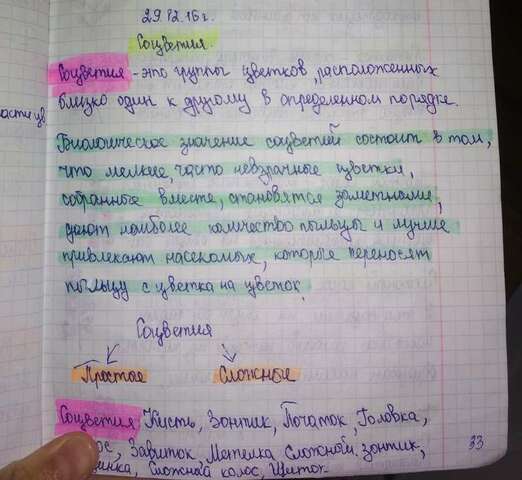 29.12.16г.
Соцветия.
Соцветия - это группы цветков, расположенных
близко один к другому в определенном порядке.
Биологическое значение соцветий состоит в том,
что мелкие, часто невзрачные цветки,
собранные вместе, становятся заметными,
дают наиболее количество пыльцы и лучше
привлекают насекомых, которые переносят
пыльцу с цветка на цветок.
Соцветия
Простые Сложные
Соцветия Кисть, Зонтик, Початок, Головка,
Завиток, Метелка Сложный зонтик,
Сложный колос, Щиток.
33